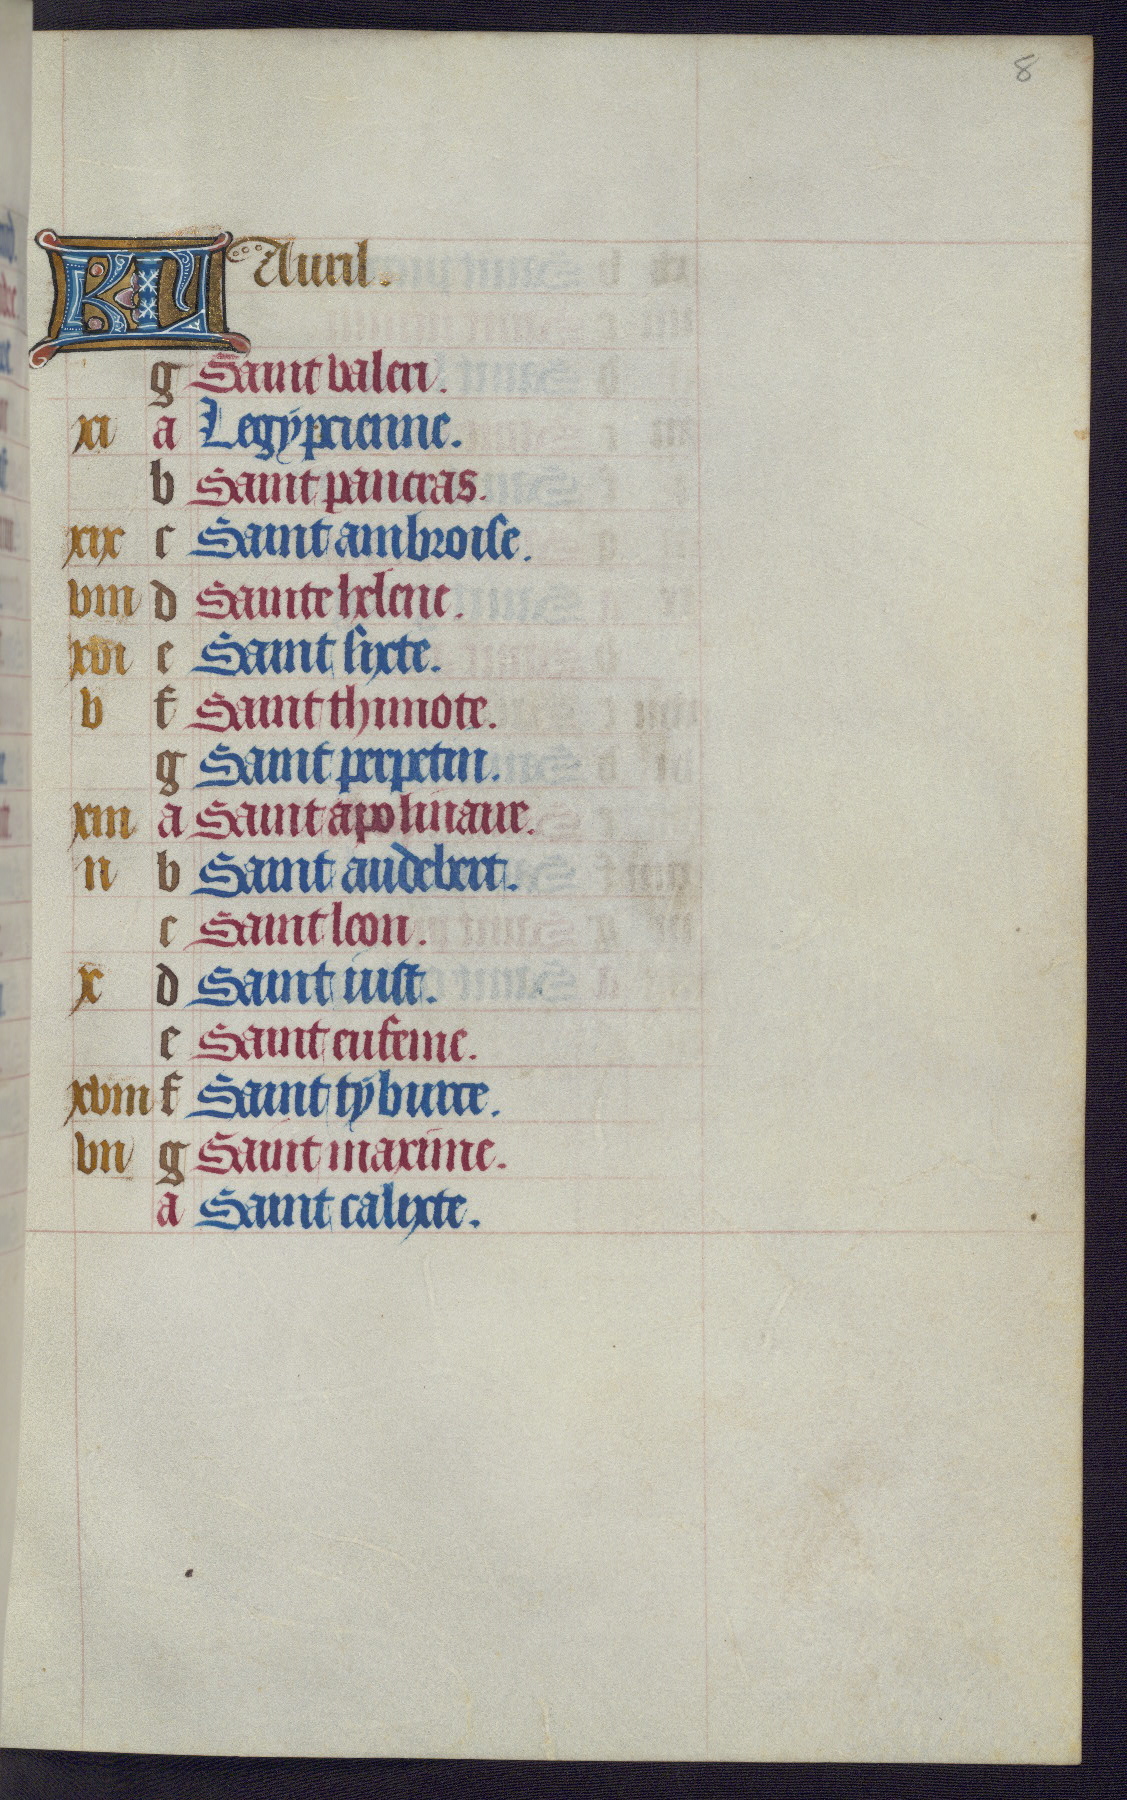 8
KL Auril.
g Saint valeri.
xi a Legypcienne.
b Saint pancras.
xix c Saint ambroise.
viii d Sainte helene.
xvi e Saint sixte.
v f Saint thimote.
g Saint perpetin.
xiii a Saint apolinaire.
ii b Saint audebert.
c Saint leon.
x d Saint iust.
e Saint eufeme.
xviii f Saint tyburce.
vii g Saint maxime.
a Saint calixte.